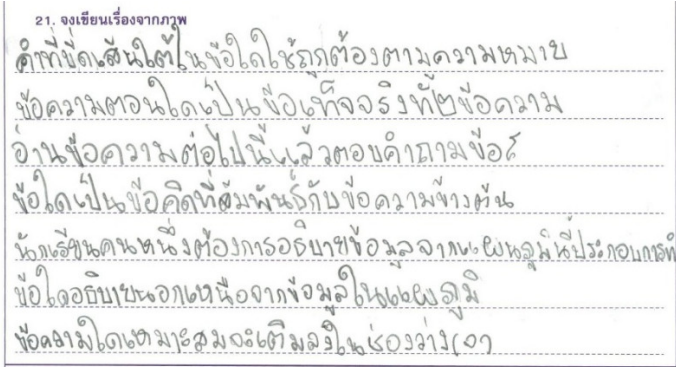 21. จงเขียนเรื่องจากภาพ
คำที่ขีดเส้นใต้ในข้อใดใช้ถูกต้องตามความหมาย
ข้อความตอนใดเป็นข้อเท็จจริงทั้ง๒ข้อความ
อ่านข้อความต่อไปนี้แล้วตอบคำถามข้อ๕
ข้อใดเป็นข้อคิดที่สัมพันธ์กับข้อความข้างต้น
นักเรียนคนหนึ่งต้องการอธิบายข้อมูลจากแผนภูมินี้ประกอบการทำ
ข้อใดอธิบายนอกเหนือจากข้อมูลในแผนภูมิ
ข้อความใดเหมาะสมจะเติมลงในช่องว่าง(จา